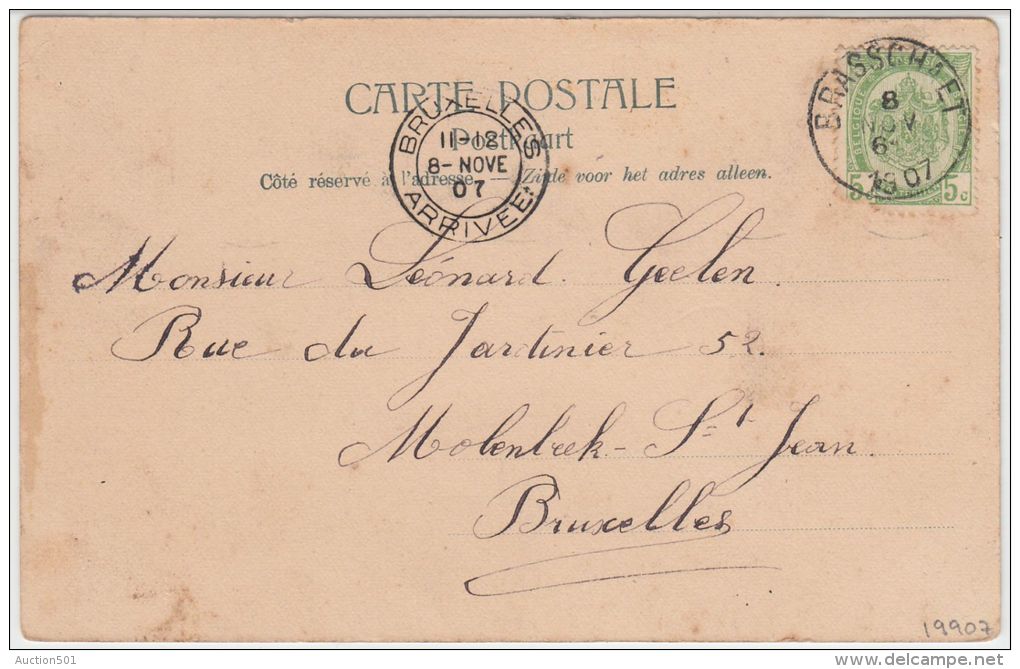 CARTE POSTALE
Postkaart
Côté réservé à l'adresse. — Zijde voor het adres alleen.
BRUXELLES
11-12
8- NOVE
07
ARRIVEE
BRASSCHAET
8
NOV
6-
1907
BELGIQUE
5c 5c
Monsieur Léonard Geelen.
Rue du Jardinier 52.
Molenbeek - St Jean.
Bruxelles
19907
Auction501
delcampe.net